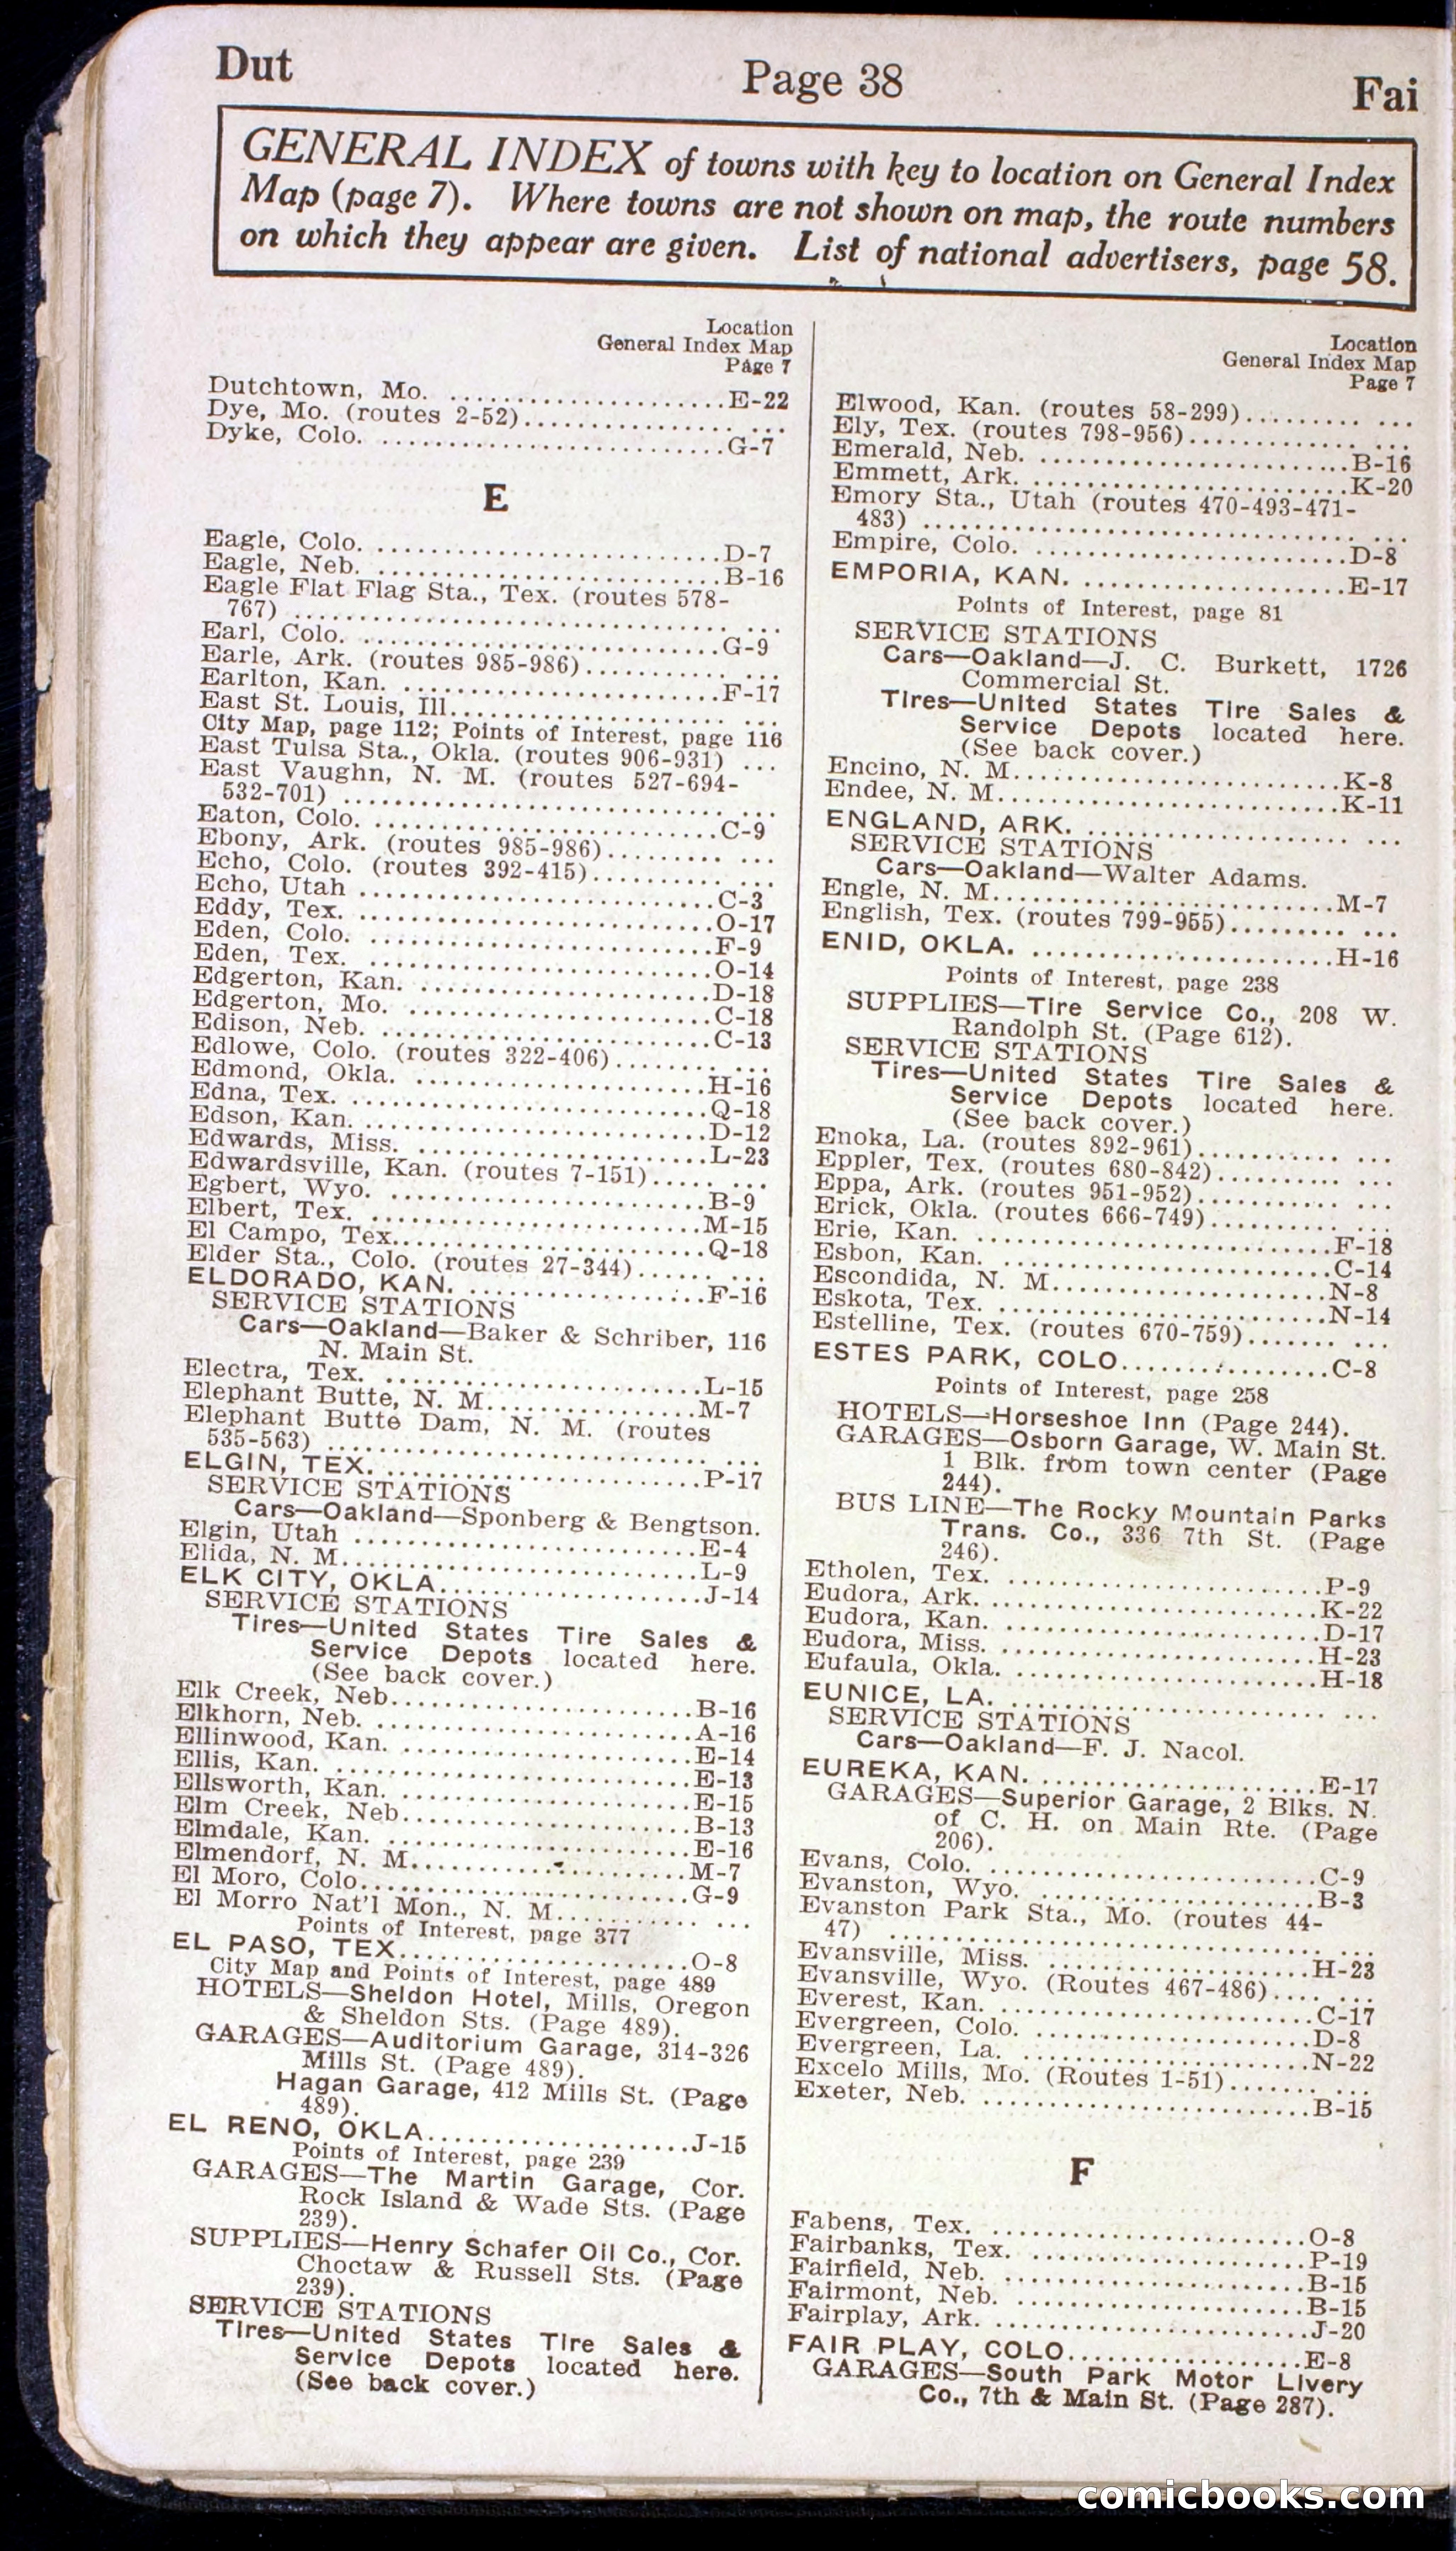 Dut
Page 38
Fai
GENERAL INDEX of towns with key to location on General Index
Map (page 7). Where towns are not shown on map, the route numbers
on which they appear are given. List of national advertisers, page 58.
Location
General Index Map
Page 7
Dutchtown, Mo. ......................E-22
Dye, Mo. (routes 2-52)................. ...
Dyke, Colo. ...........................G-7
E
Eagle, Colo. ...........................D-7
Eagle, Neb. ............................B-16
Eagle Flat Flag Sta., Tex. (routes 578-
767) .................................... ...
Earl, Colo. ............................G-9
Earle, Ark. (routes 985-986)............ ...
Earlton, Kan. .........................F-17
East St. Louis, Ill...................... ...
City Map, page 112; Points of Interest, page 116
East Tulsa Sta., Okla. (routes 906-931) ...
East Vaughn, N. M. (routes 527-694-
532-701) ................................ ...
Eaton, Colo. ...........................C-9
Ebony, Ark. (routes 985-986).......... ...
Echo, Colo. (routes 392-415)........... ...
Echo, Utah ............................C-3
Eddy, Tex. ............................O-17
Eden, Colo. ...........................F-9
Eden, Tex. ............................O-14
Edgerton, Kan. ........................D-18
Edgerton, Mo. ........................C-18
Edison, Neb. ..........................C-13
Edlowe, Colo. (routes 322-406)......... ...
Edmond, Okla. .......................H-16
Edna, Tex. ............................Q-18
Edson, Kan. ...........................D-12
Edwards, Miss. .......................L-23
Edwardsville, Kan. (routes 7-151)..... ...
Egbert, Wyo. .........................B-9
Elbert, Tex. ..........................M-15
El Campo, Tex.........................Q-18
Elder Sta., Colo. (routes 27-344)...... ...
ELDORADO, KAN. ...................F-16
SERVICE STATIONS
Cars—Oakland—Baker & Schriber, 116
N. Main St.
Electra, Tex. .........................L-15
Elephant Butte, N. M.................M-7
Elephant Butte Dam, N. M. (routes
535-563) ................................ ...
ELGIN, TEX. .........................P-17
SERVICE STATIONS
Cars—Oakland—Sponberg & Bengtson.
Elgin, Utah ...........................E-4
Elida, N. M............................L-9
ELK CITY, OKLA.....................J-14
SERVICE STATIONS
Tires—United States Tire Sales &
Service Depots located here.
(See back cover.)
Elk Creek, Neb........................B-16
Elkhorn, Neb. ........................A-16
Ellinwood, Kan. ......................E-14
Ellis, Kan. ............................E-13
Ellsworth, Kan. .......................E-15
Elm Creek, Neb.......................B-13
Elmdale, Kan. ........................E-16
Elmendorf, N. M......................M-7
El Moro, Colo.........................G-9
El Morro Nat'l Mon., N. M........... ...
Points of Interest, page 377
EL PASO, TEX........................O-8
City Map and Points of Interest, page 489
HOTELS—Sheldon Hotel, Mills, Oregon
& Sheldon Sts. (Page 489).
GARAGES—Auditorium Garage, 314-326
Mills St. (Page 489).
Hagan Garage, 412 Mills St. (Page
489).
EL RENO, OKLA......................J-15
Points of Interest, page 239
GARAGES—The Martin Garage, Cor.
Rock Island & Wade Sts. (Page
239).
SUPPLIES—Henry Schafer Oil Co., Cor.
Choctaw & Russell Sts. (Page
239).
SERVICE STATIONS
Tires—United States Tire Sales &
Service Depots located here.
(See back cover.)
Location
General Index Map
Page 7
Elwood, Kan. (routes 58-299)......... ...
Ely, Tex. (routes 798-956)............. ...
Emerald, Neb. ........................B-16
Emmett, Ark. .........................K-20
Emory Sta., Utah (routes 470-493-471-
483) .................................... ...
Empire, Colo. .........................D-8
EMPORIA, KAN. .....................E-17
Points of Interest, page 81
SERVICE STATIONS
Cars—Oakland—J. C. Burkett, 1726
Commercial St.
Tires—United States Tire Sales &
Service Depots located here.
(See back cover.)
Encino, N. M..........................K-8
Endee, N. M...........................K-11
ENGLAND, ARK. ..................... ...
SERVICE STATIONS
Cars—Oakland—Walter Adams.
Engle, N. M...........................M-7
English, Tex. (routes 799-955)......... ...
ENID, OKLA. ........................H-16
Points of Interest, page 238
SUPPLIES—Tire Service Co., 208 W.
Randolph St. (Page 612).
SERVICE STATIONS
Tires—United States Tire Sales &
Service Depots located here.
(See back cover.)
Enoka, La. (routes 892-961)........... ...
Eppler, Tex. (routes 680-842).......... ...
Eppa, Ark. (routes 951-952)........... ...
Erick, Okla. (routes 666-749).......... ...
Erie, Kan. ............................F-18
Esbon, Kan. ..........................C-14
Escondida, N. M......................N-8
Eskota, Tex. ..........................N-14
Estelline, Tex. (routes 670-759)....... ...
ESTES PARK, COLO..................C-8
Points of Interest, page 258
HOTELS—Horseshoe Inn (Page 244).
GARAGES—Osborn Garage, W. Main St.
1 Blk. from town center (Page
244).
BUS LINE—The Rocky Mountain Parks
Trans. Co., 336 7th St. (Page
246).
Etholen, Tex. .........................P-9
Eudora, Ark. .........................K-22
Eudora, Kan. .........................D-17
Eudora, Miss. ........................H-23
Eufaula, Okla. .......................H-18
EUNICE, LA. ......................... ...
SERVICE STATIONS
Cars—Oakland—F. J. Nacol.
EUREKA, KAN. ......................E-17
GARAGES—Superior Garage, 2 Blks. N.
of C. H. on Main Rte. (Page
206).
Evans, Colo. ..........................C-9
Evanston, Wyo. ......................B-3
Evanston Park Sta., Mo. (routes 44-
47) ..................................... ...
Evansville, Miss. .....................H-23
Evansville, Wyo. (Routes 467-486).... ...
Everest, Kan. ........................C-17
Evergreen, Colo. .....................D-8
Evergreen, La. .......................N-22
Excelo Mills, Mo. (Routes 1-51)....... ...
Exeter, Neb. .........................B-15
F
Fabens, Tex. .........................O-8
Fairbanks, Tex. ......................P-19
Fairfield, Neb. .......................B-15
Fairmont, Neb. ......................B-15
Fairplay, Ark. ........................J-20
FAIR PLAY, COLO...................E-8
GARAGES—South Park Motor Livery
Co., 7th & Main St. (Page 287).
comicbooks.com